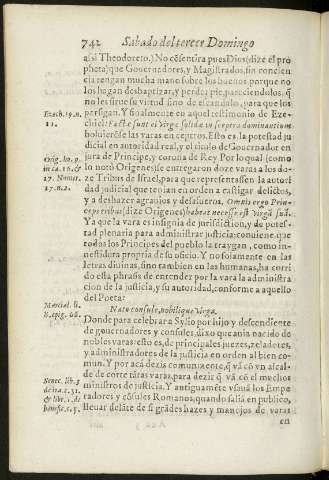 742 Sabado del tercer Domingo
assi Theodoreto.) No cõsentira pues Dios (dize el pro
pheta) que Gouernadores, y Magistrados, sin concien
cia tengan mucha mano sobre los buenos porque no
los hagan desbaptizar, y perder pie, pareciendolos, q̃
no les sirue su virtud sino de escandalo, para que los
persigan. Y finalmente en aquel testimonio de Eze-
Ezech. 19. n.
11.
chiel: Factæ sunt ei virgæ solidæ in sceptra dominantium
boluieronse las varas en ceptros. Esto es la potestad ju
dicial en autoridad real, y el titulo de Gouernador en
jura de Principe, y corona de Rey. Por lo qual (como
Orig. ho. 9.
lo notò Origenes) se entregaron doze varas a los do-
17. Numer.
17. n. 2.
ze Tribus de Israel, para que representassen la autori
dad judicial que tenian en orden a castigar delictos,
y a deshazer agrauios y desafueros. Omnis ergo Prin-
ceps tribus (dize Origenes) habeat necesse est virgã suã.
Ya que la vara es insignia de jurisdiction, y de potes-
tad plenaria para administrar justicia: conuiene, que
todos los Principes del pueblo la traygan, como in-
sinidora propria de su oficio. Y no solamente en las
letras diuinas, sino tambien en las humanas, ha corri
do esta phrasis de entender por la vara la administra
cion de la justicia, y su autoridad, conforme a aquello
del Poeta:
Martial. li.
8. epig. 66.
Nato consule, nobilique virga.
Donde para celebrar a Sylio por hijo y descendiente
de gouernadores y consules, dixo que auia nacido de
nobles varas: esto es, de principales juezes, zeladores,
y administradores de la justicia en orden al bien co-
mun. Y por acà dezis comunmente, q̃ và cõ vn alcal-
de de corte tãtas varas, para dezir q̃ và cõ el muchos
Senec. lib. 3
ministros de justicia. Y antiguamẽte vsauã los Empe
& lib. 1. de
benefic. c. 5.
radores y cõsules Romanos, quando salia en publico,
lleuar delãte de si grãdes hazes y manojos de varas
en